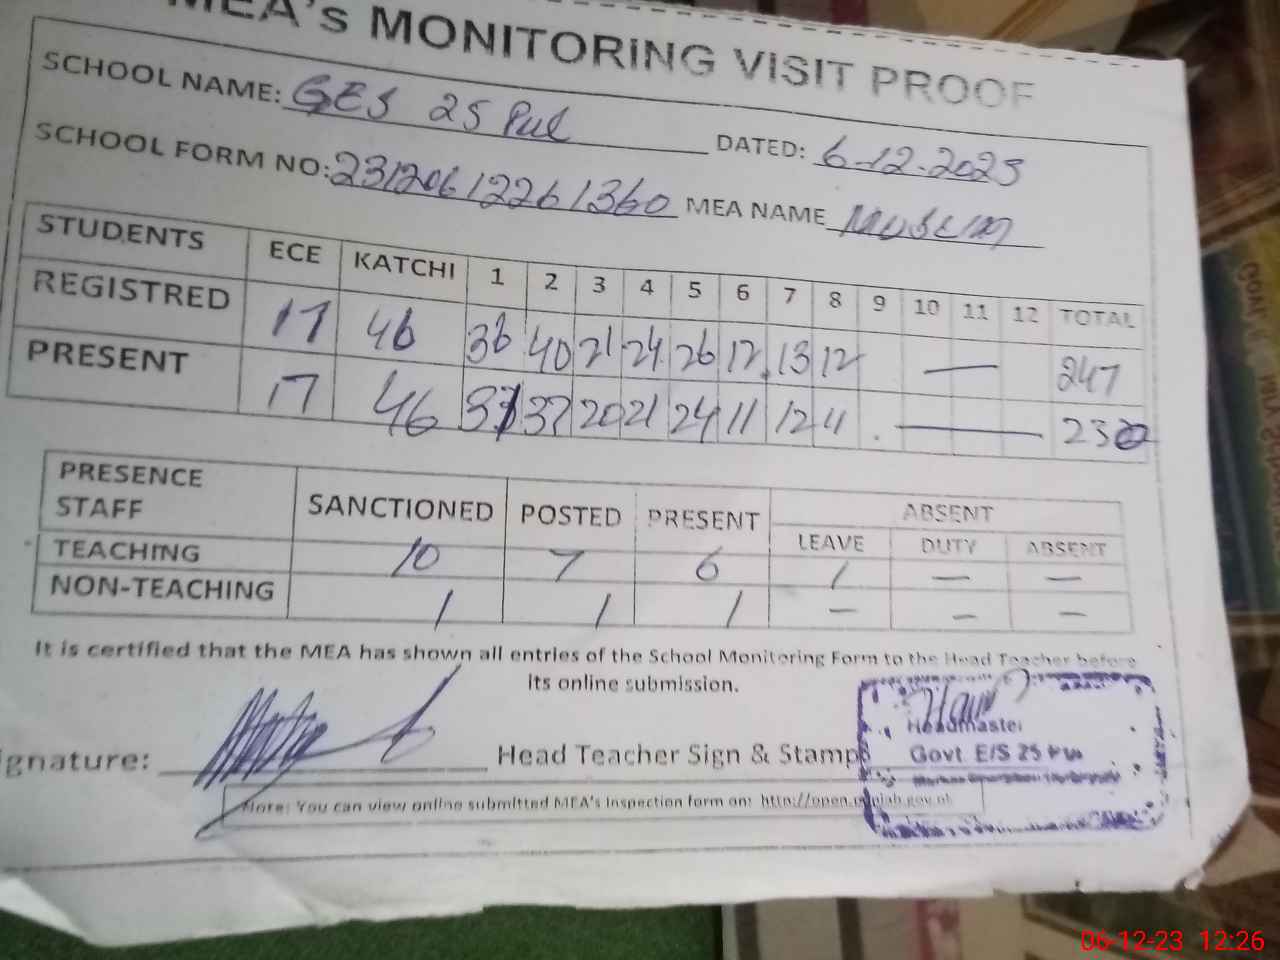 MEA's MONITORING VISIT PROOF
SCHOOL NAME: GES 25 Pul DATED: 6-12-2023
SCHOOL FORM NO: 23120612261360 MEA NAME
STUDENTS ECE KATCHI 1 2 3 4 5 6 7 8 9 10 11 12 TOTAL
REGISTRED 17 46 36 40 21 24 26 12 13 12 — 247
PRESENT 17 46 37 20 21 24 11 12 11 — 230
PRESENCE STAFF SANCTIONED POSTED PRESENT ABSENT
LEAVE DUTY ABSENT
TEACHING 10 7 6 1 — —
NON-TEACHING 1 1 1 — — —
It is certified that the MEA has shown all entries of the School Monitoring Form to the Head Teacher before
its online submission.
ignature: Head Teacher Sign & Stamp
Headmaster
Govt E/S 25
Note: You can view online submitted MEA's Inspection form on: http://open.punjab.gov.pk
06-12-23 12:26